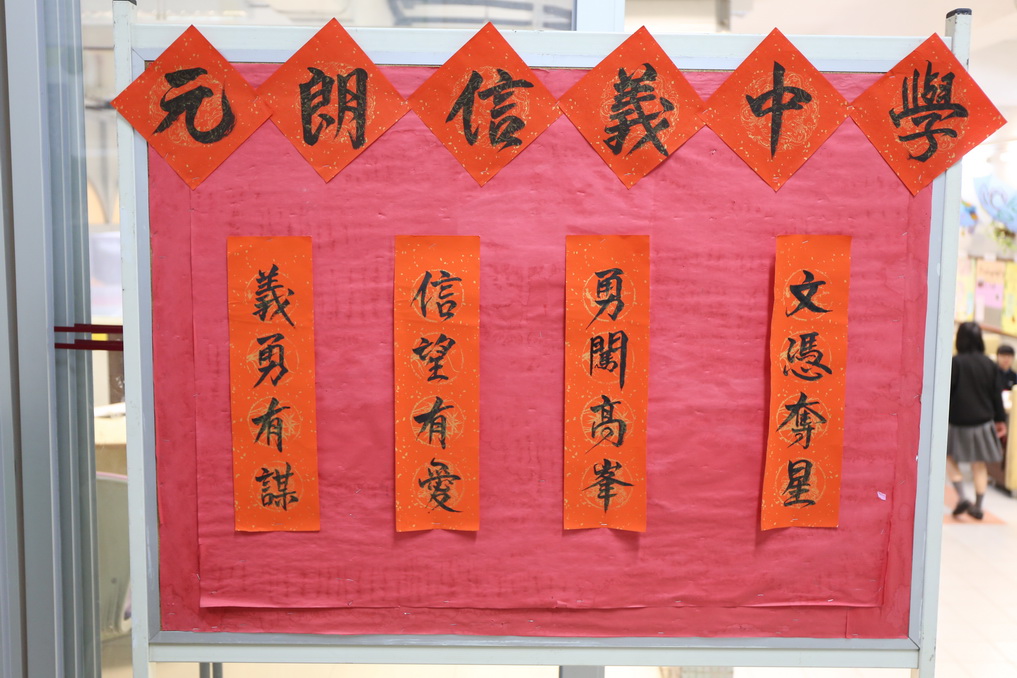 元朗信義中學
義勇有謀
信望有愛
勇闖高峯
文憑奪星